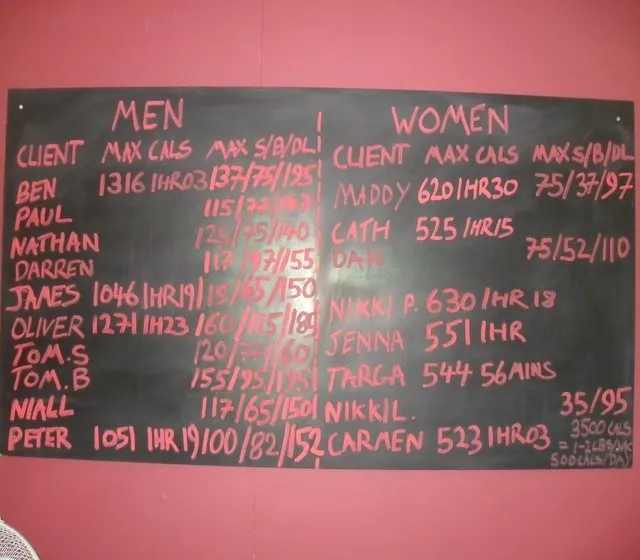 MEN
CLIENT MAX CALS MAX S/B/DL
BEN 1316 1HR03 137/75/195
PAUL
NATHAN 125/75/140
DARREN 117/97/155
JAMES 1046 1HR19 115/65/150
OLIVER 1271 1H23 160/115/180
TOM.S
TOM.B 155/95/195
NIALL 117/65/150
PETER 1051 1HR19 100/82/152
WOMEN
CLIENT MAX CALS MAX S/B/DL
MADDY 620 1HR30 75/37/97
CATH 525 1HR15
DAN 75/52/110
NIKKI P. 630 1HR 18
JENNA 551 1HR
TARGA 544 56MINS
NIKKI L. 35/95
CARMEN 523 1HR03
3500 CALS
= 1-2LBS/WK
500CALS/DAY